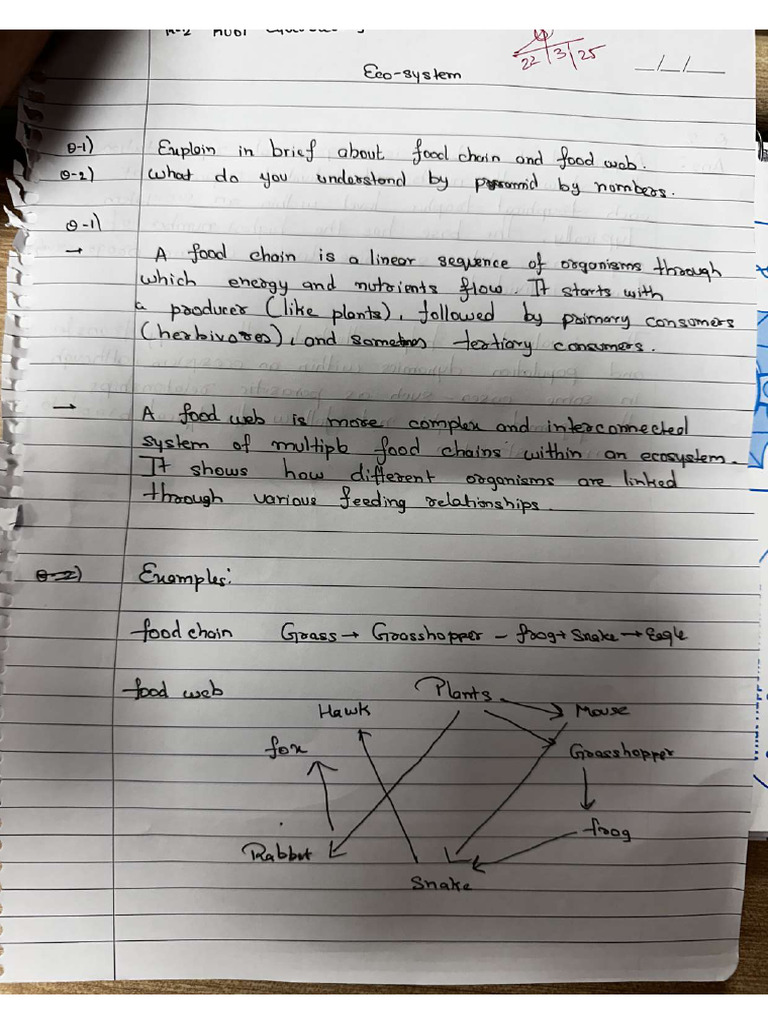 Eco-system
22/3/25
_/_/_
Q-1) Explain in brief about food chain and food web.
Q-2) What do you understand by pyramid by nombers.
Q-1)
→ A food chain is a linear sequence of organisms through
which energy and nutrients flow. It starts with
a producer (like plants), followed by primary consumers
(herbivores), and sometimes tertiary consumers.
→ A food web is more complex and interconnected
system of multiple food chains within an ecosystem.
It shows how different organisms are linked
through various feeding relationships.
Q-2) Examples:
food chain Grass → Grasshopper - frog → Snake → Eagle
food web
Plants
Hawk
Mouse
fox
Grasshopper
frog
Rabbit
Snake